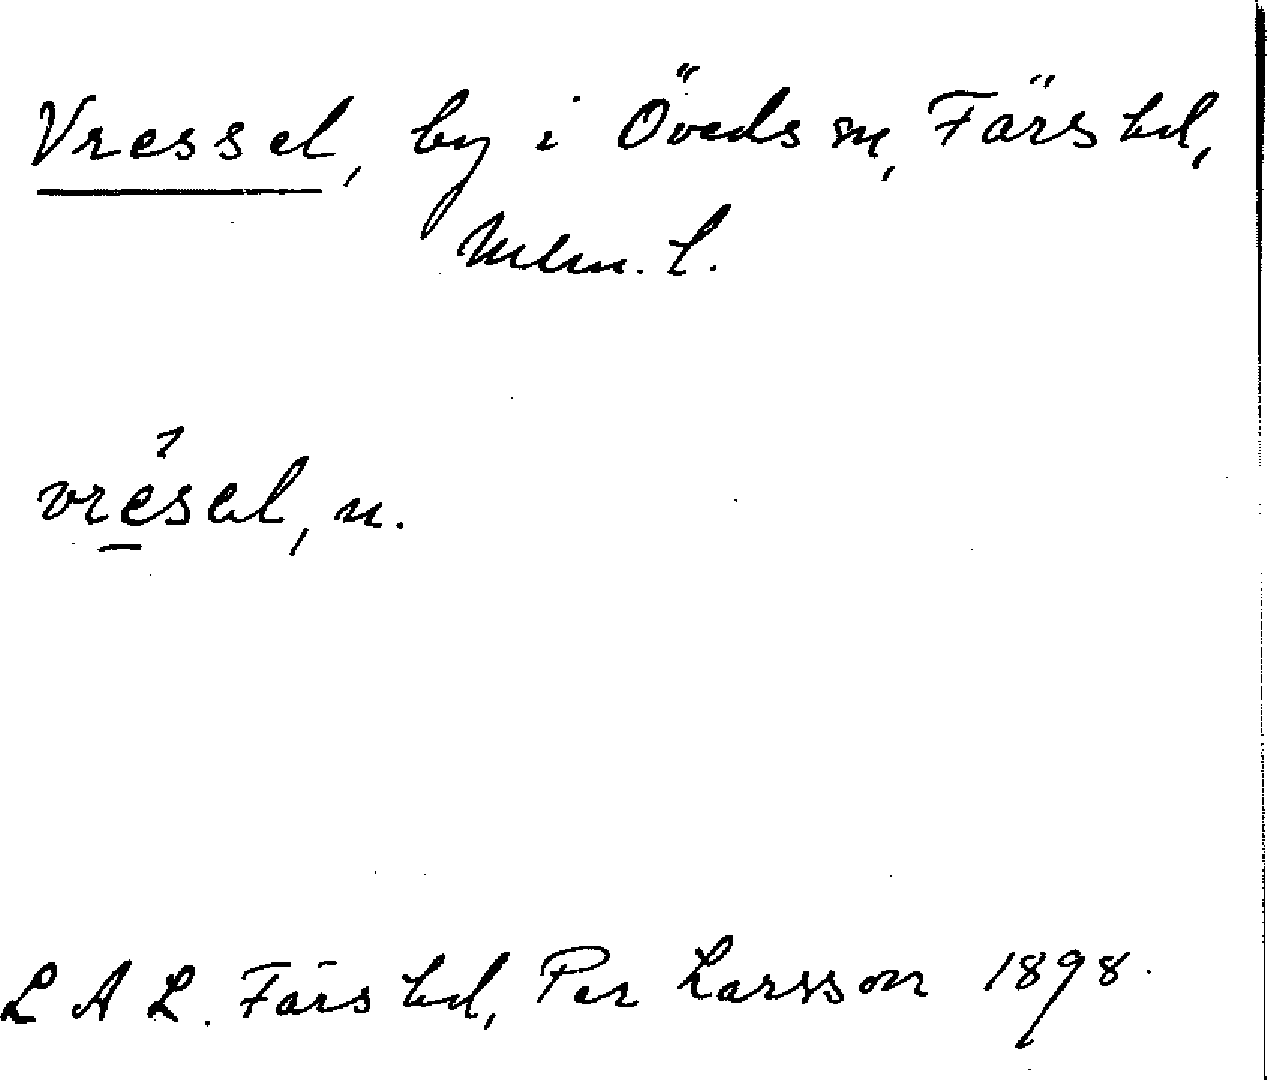 Vressel, by i Öveds sn, Färs hd,
Mlm. l.
vrésel, n.
L A L. Färs hd, Per Larsson 1898.